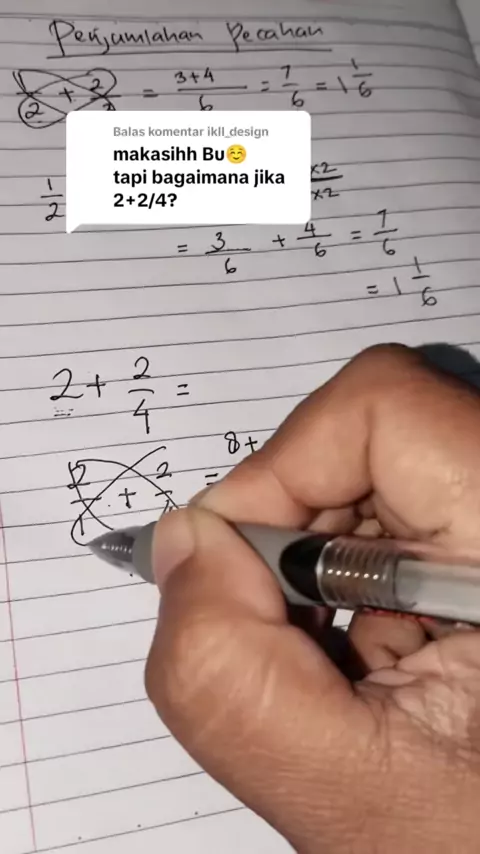 Penjumlahan Pecahan
2 + 2 = 3+4 / 6 = 7/6 = 1 1/6
Balas komentar ikll_design
makasihh Bu☺️
tapi bagaimana jika
2+2/4?
1/2
×2
×2
= 3/6 + 4/6 = 7/6
= 1 1/6
2 + 2/4 =
2/1 + 2 = 8+